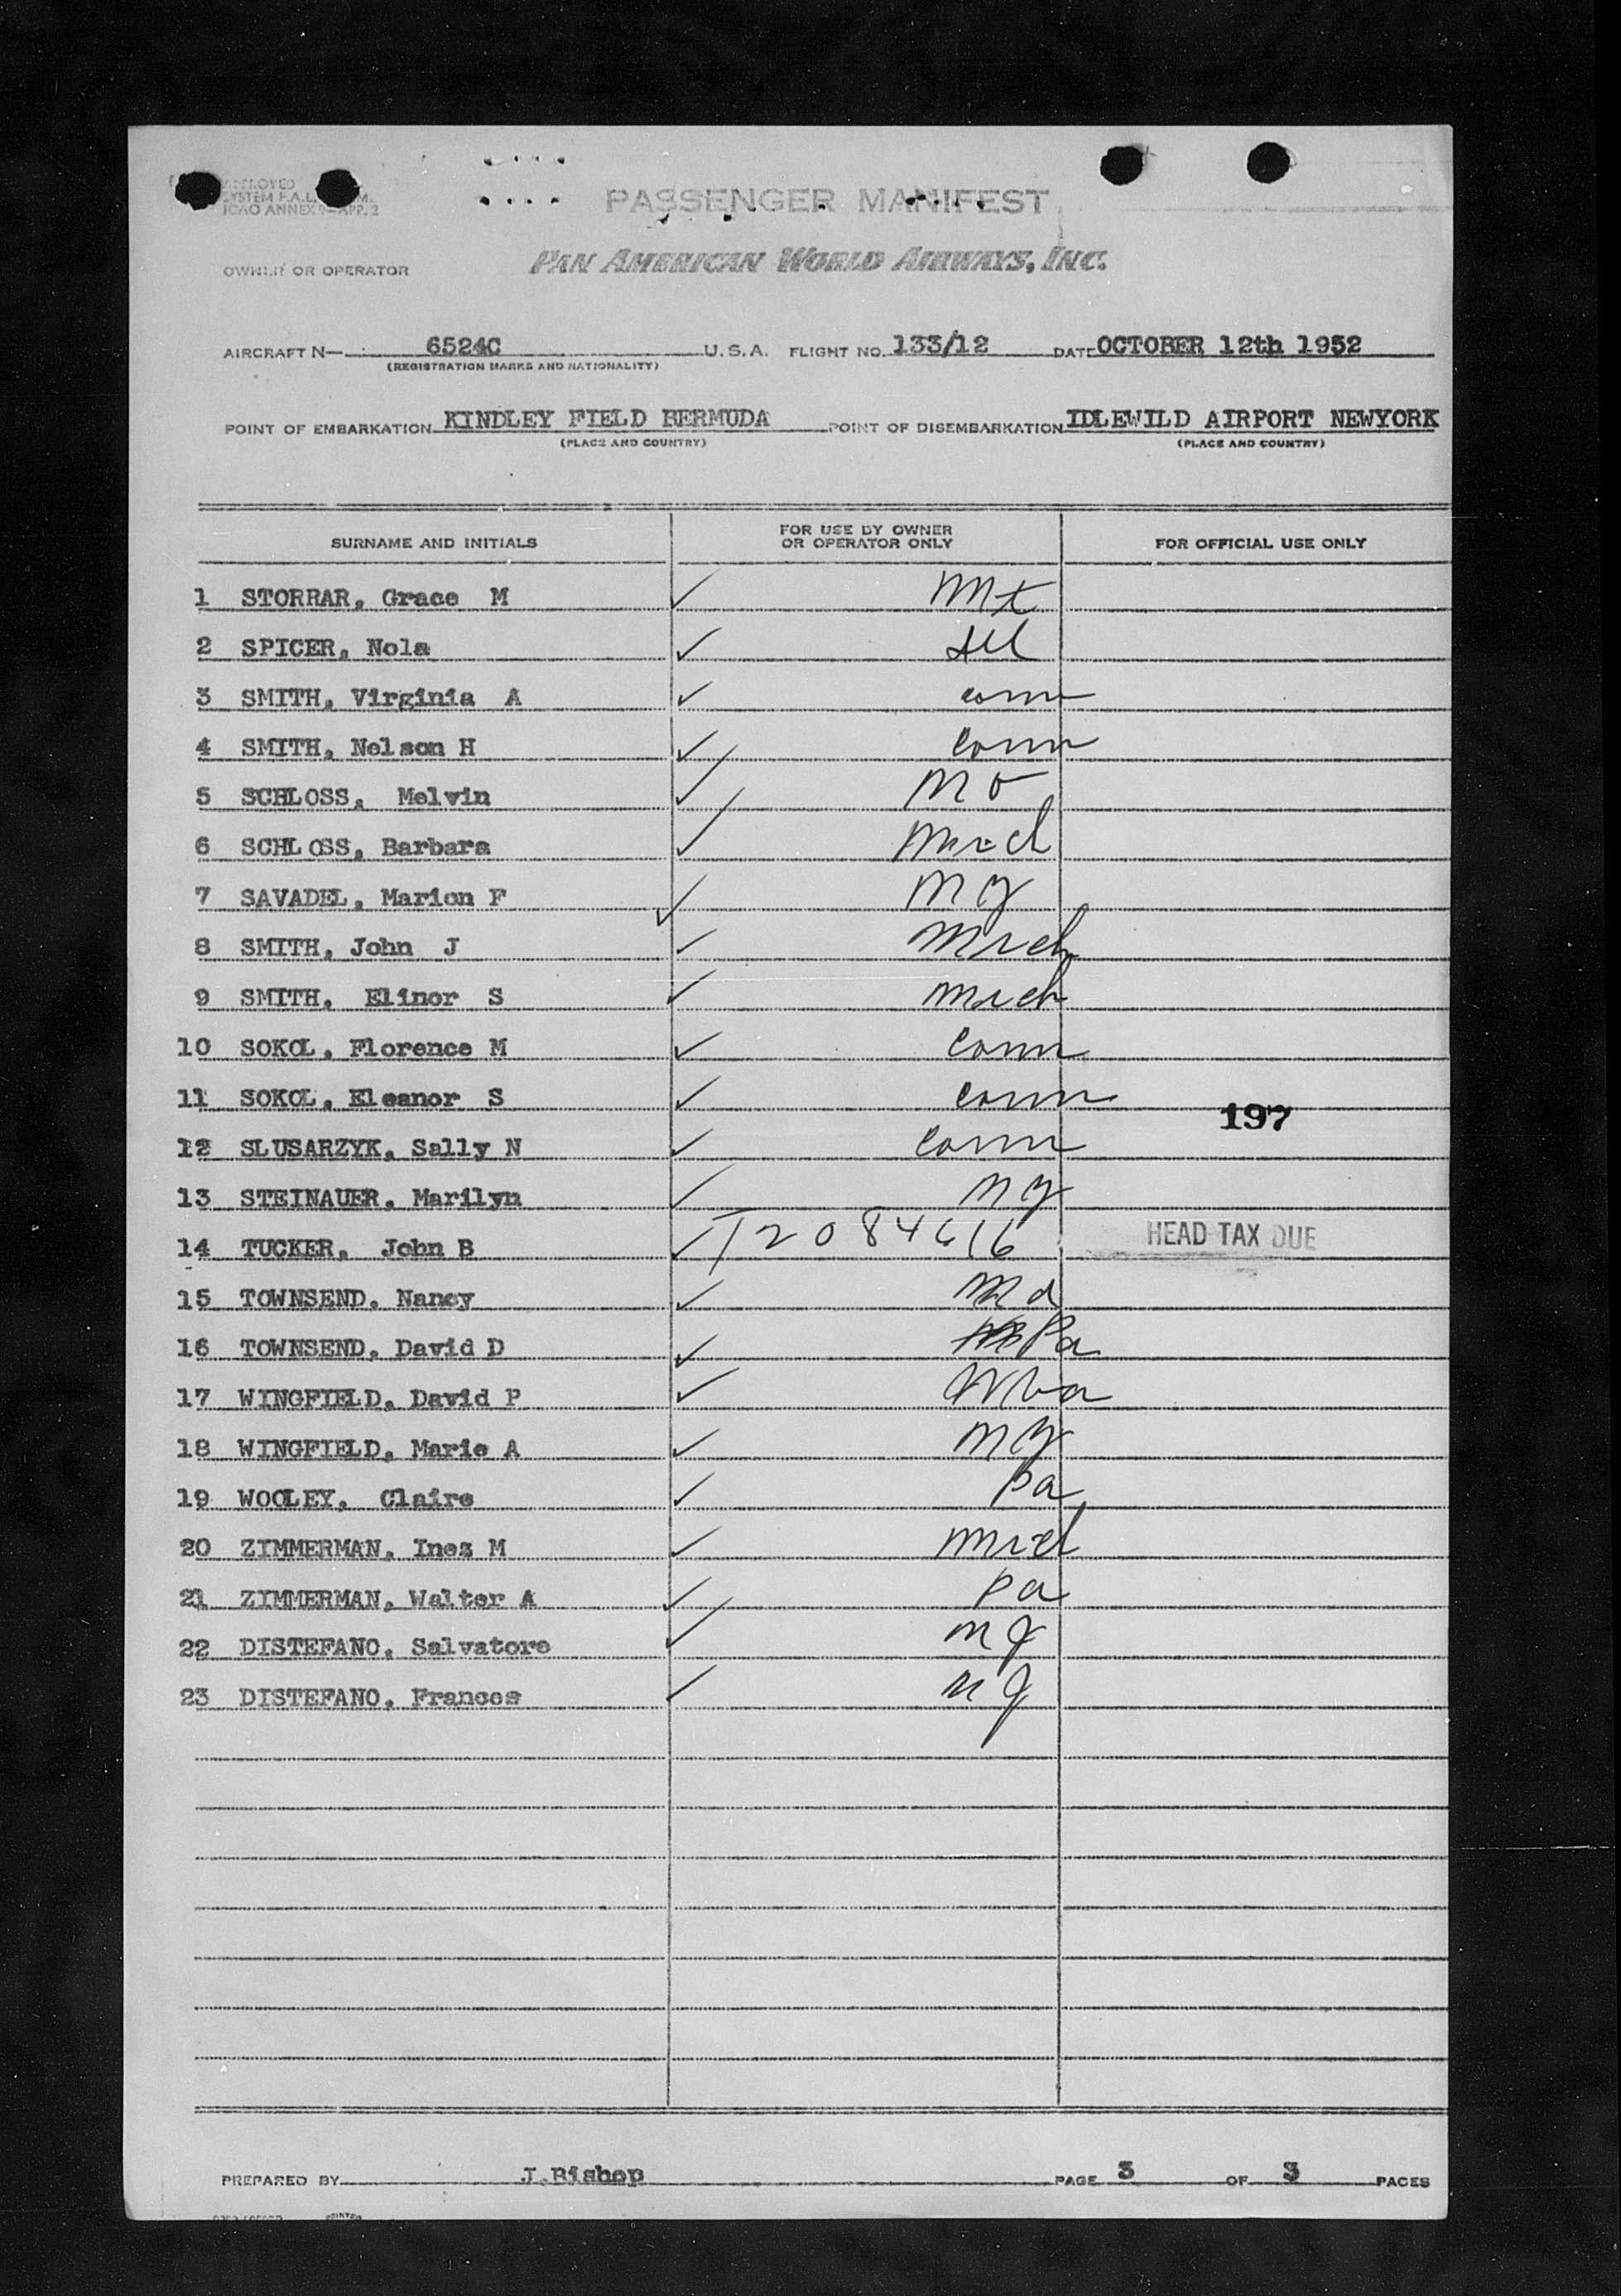 APPROVED
SYSTEM F.A.L. M.
ICAO ANNEX 9—APP. 2
PASSENGER MANIFEST
OWNER OR OPERATOR PAN AMERICAN WORLD AIRWAYS, INC.
AIRCRAFT N— 6524C U.S.A. FLIGHT NO. 133/12 DATE OCTOBER 12th 1952
(REGISTRATION MARKS AND NATIONALITY)
POINT OF EMBARKATION KINDLEY FIELD BERMUDA POINT OF DISEMBARKATION IDLEWILD AIRPORT NEWYORK
(PLACE AND COUNTRY) (PLACE AND COUNTRY)
SURNAME AND INITIALS FOR USE BY OWNER OR OPERATOR ONLY FOR OFFICIAL USE ONLY
1 STORRAR, Grace M ✓ Mt
2 SPICER, Nola ✓
3 SMITH, Virginia A ✓ conn
4 SMITH, Nelson H ✓ Conn
5 SCHLOSS, Melvin ✓ Mo
6 SCHLOSS, Barbara ✓ Mich
7 SAVADEL, Marion F ✓ NY
8 SMITH, John J ✓ Mich
9 SMITH, Elinor S ✓ Mich
10 SOKOL, Florence M ✓ Conn
11 SOKOL, Eleanor S ✓ Conn
197
12 SLUSARZYK, Sally N ✓ Conn
13 STEINAUER, Marilyn ✓ NY
14 TUCKER, John B ✓ T2084616 HEAD TAX DUE
15 TOWNSEND, Nancy ✓ Md
16 TOWNSEND, David D ✓ Pa
17 WINGFIELD, David P ✓ W Va
18 WINGFIELD, Marie A ✓ NY
19 WOOLEY, Claire ✓ Pa
20 ZIMMERMAN, Inez M ✓ Mich
21 ZYMMERMAN, Walter A ✓ Pa
22 DISTEFANO, Salvatore ✓ NJ
23 DISTEFANO, Frances ✓ NJ
PREPARED BY J.Bishop PAGE 3 OF 3 PAGES